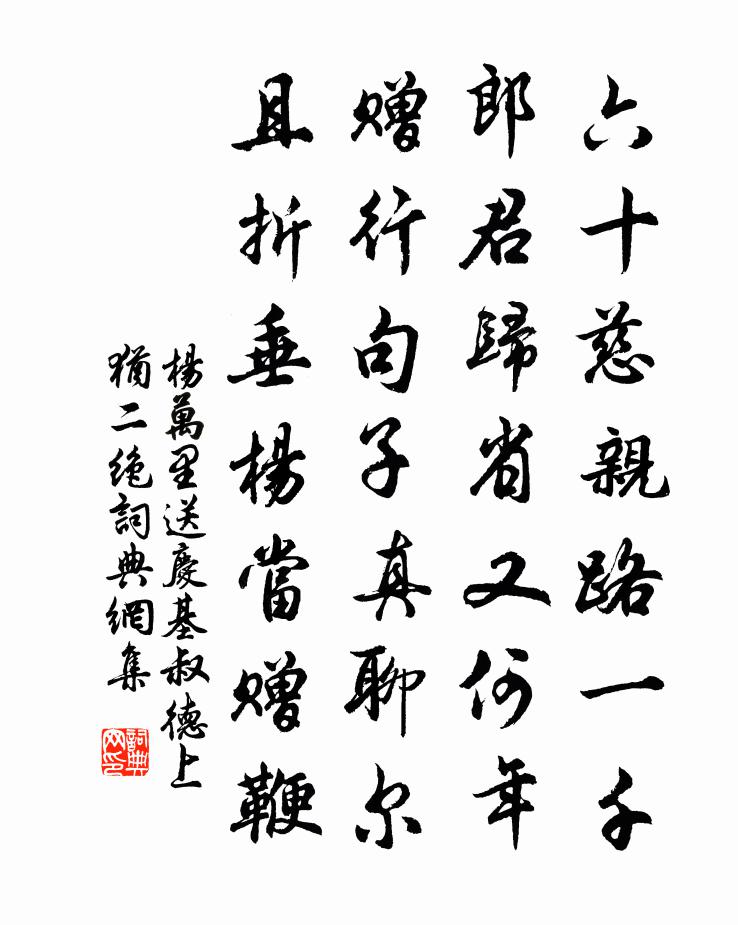 六十慈親路一千
郎君歸省又何年
贈行句子真聊尔
且折垂楊當贈鞭
楊萬里送慶基叔德上
猶二絶詞典網集
詞典网印